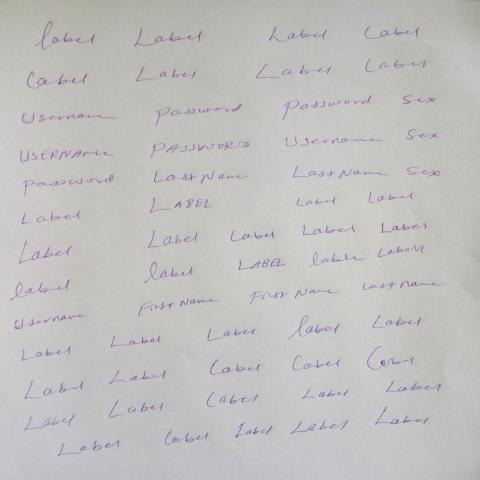 label Label Label Label
Label Label Label Label
Username Password Password Sex
USERNAMe PASSWORD Username Sex
Password Last Name Last Name Sex
Label LABEL Label Label
Label Label Label Label Label
label label LABEL lable Labell
Username First Name First Name Last name
Label Label Label label Label
Label Label Label Label Label
Label Label Label Label Label
Label Label Label Label Label